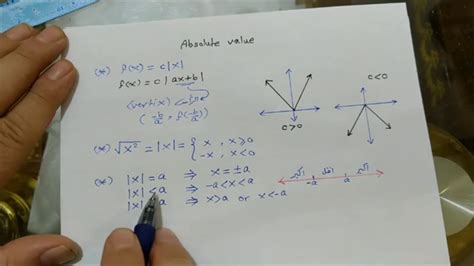 Absolute value
(*) f(x) = c|x|
f(x) = c|ax+b|
(vertix)
(-b/a, f(-b/a))
c>0
c<0
(*) √x² = |x| = { x, x≥0
-x, x<0
(*) |x| = a ⇒ x = ±a
|x| < a ⇒ -a<x<a
|x| a ⇒ x>a or x<-a
-a a